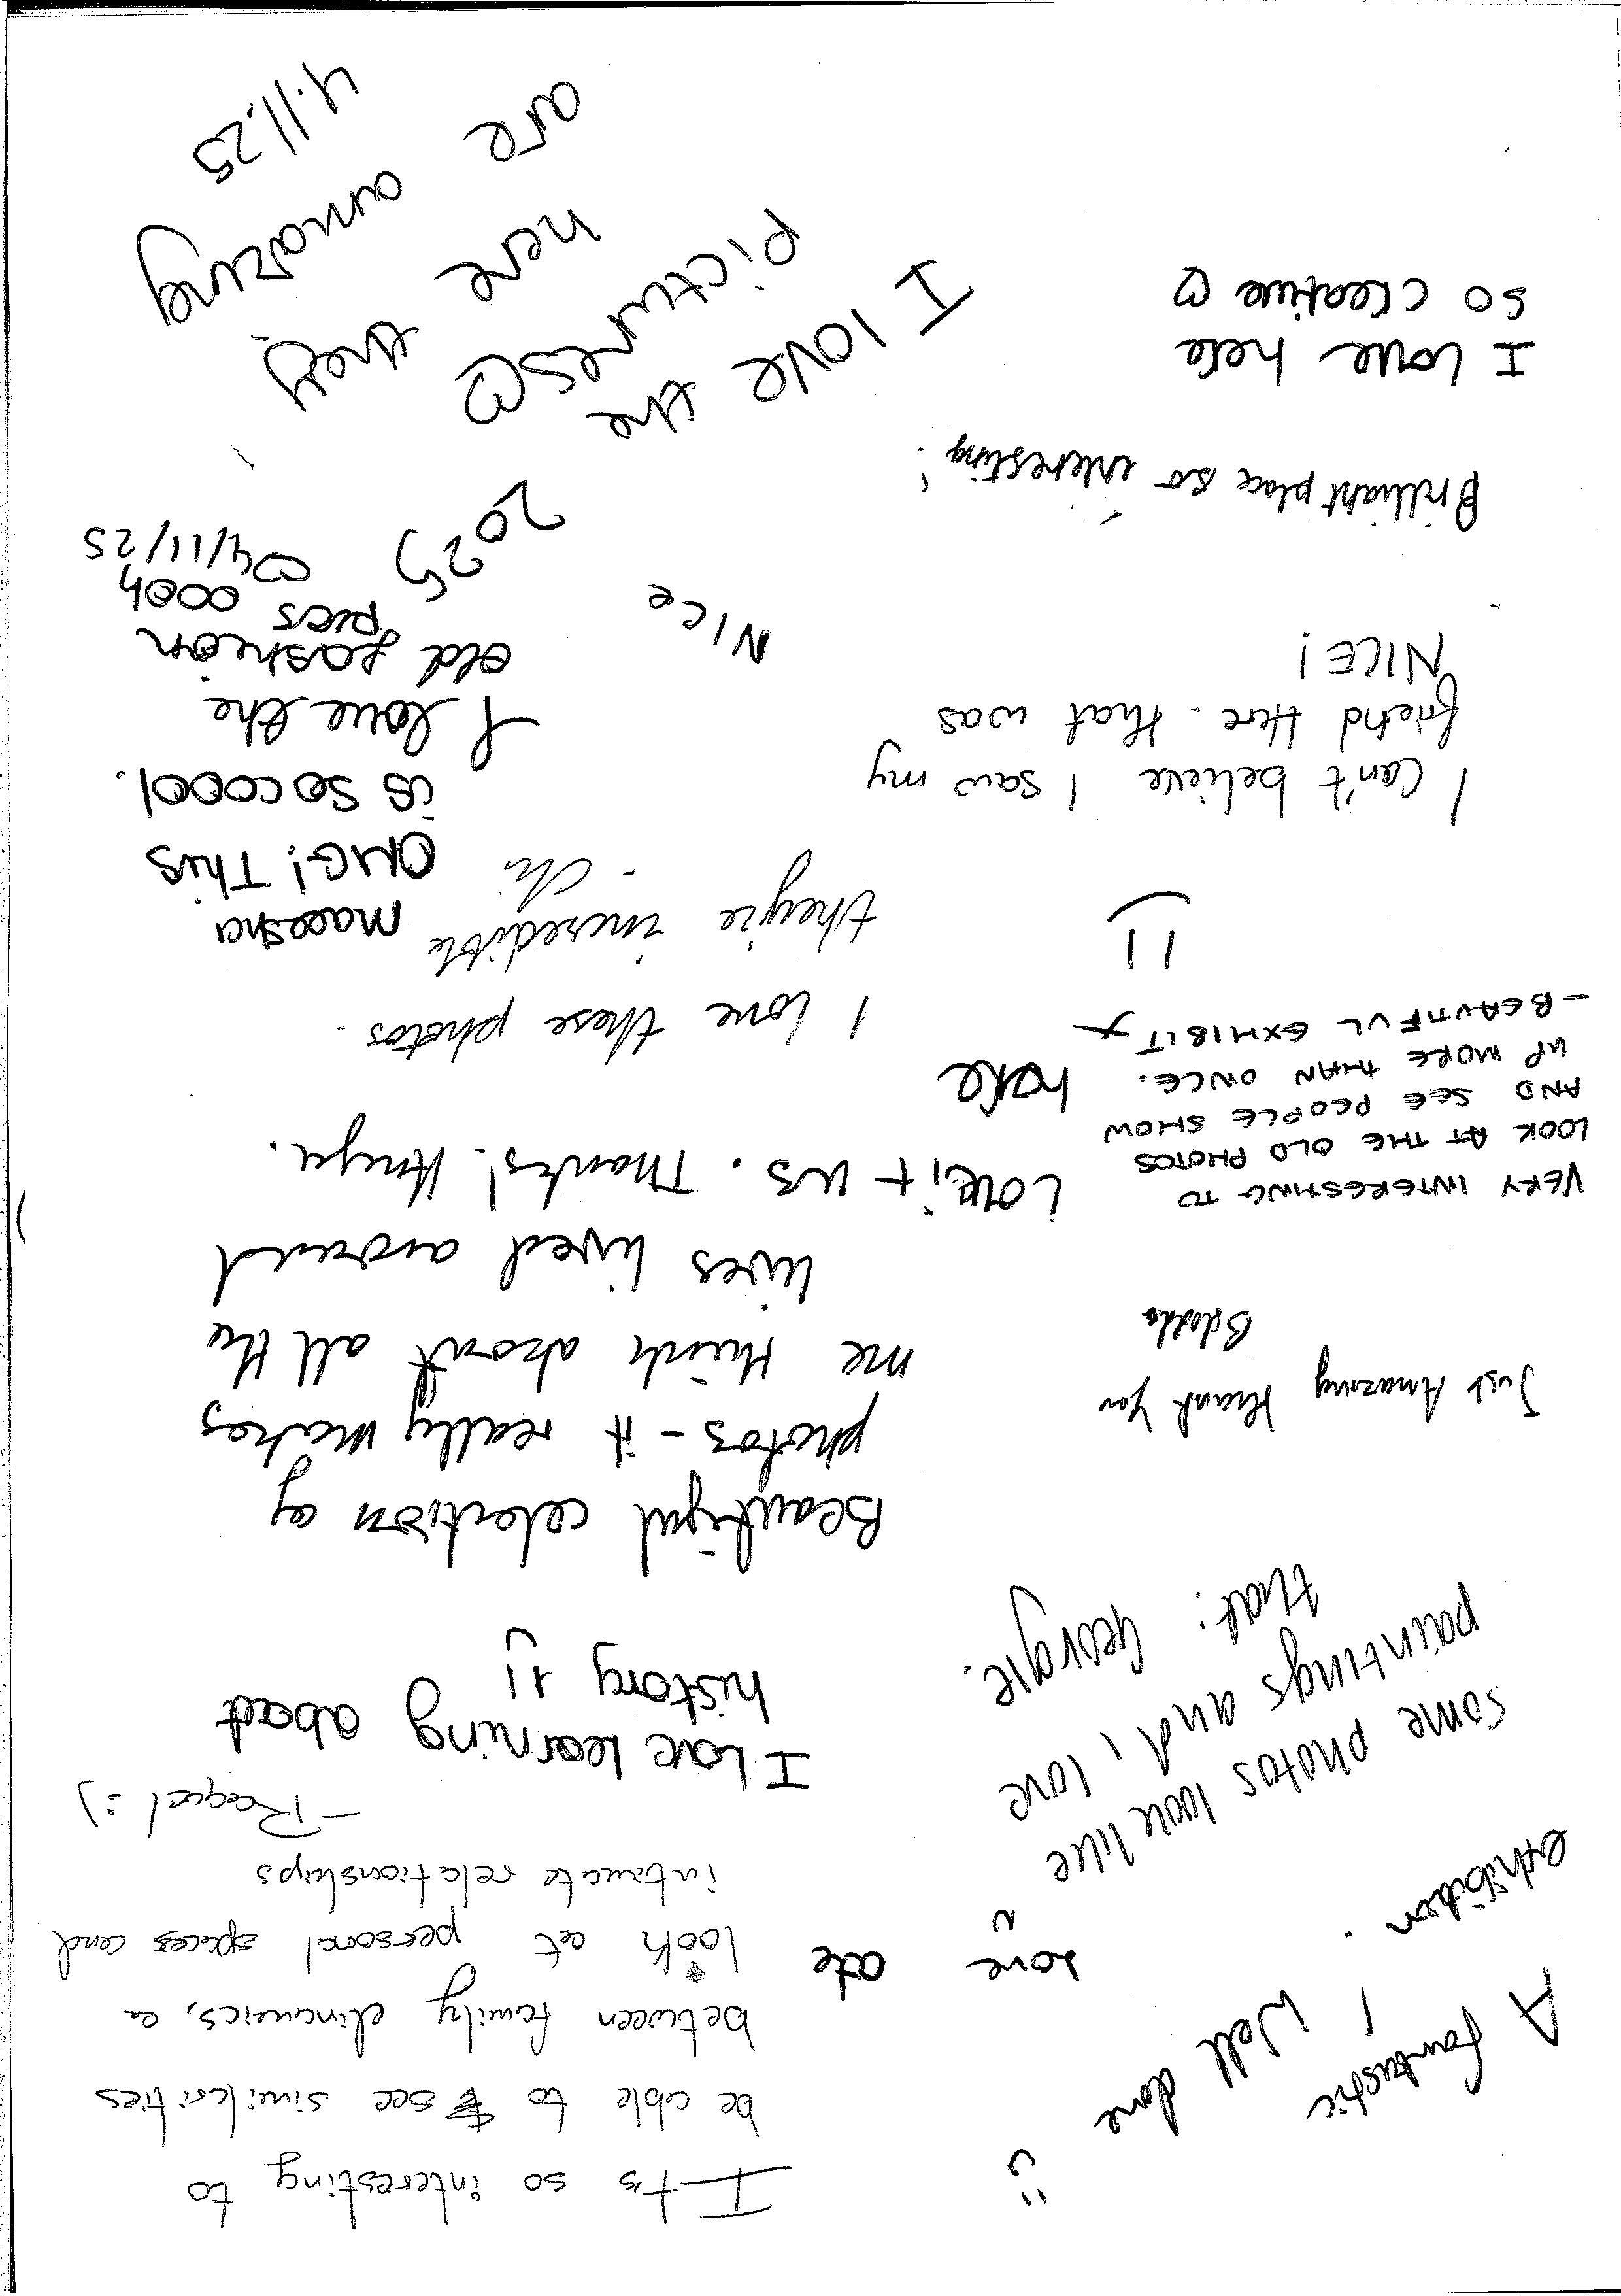 A fantastic
exhibition.
Well done
It's so interesting to
be able to see similarities
between family dinamics, a
look at personal spaces and
intimate relationships
- Raquel :)
Love
some photos look like
paintings and i love
that. Georgie.
I Love learning about
history :)
Beautiful colection of
photos - it really makes
me think about all the
lives lived around
us. Thanks!
Just Amazing thank you
VERY INTERESTING TO
LOOK AT THE OLD PHOTOS
AND SEE PEOPLE SHOW
UP MORE THAN ONCE.
- BEAUTIFUL EXHIBIT x
Love it
here
I love these photos.
they're incredible
Maeesha
OMG! This
is so cooool.
I love the
old fashion
pics oooh
♡ 4/11/25
I can't believe I saw my
friend Here. that was
NICE!
NICe
2025
Brilliant place so interesting!
I Love here
so creative ♡
I love the
pictures ♡
here they
are amazing
4.11.25